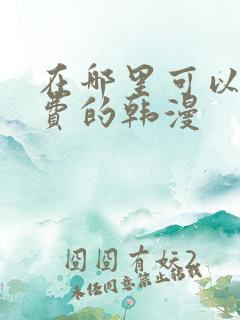 在哪里可以
费的韩漫
囧囧有妖2
未经同意禁止转载